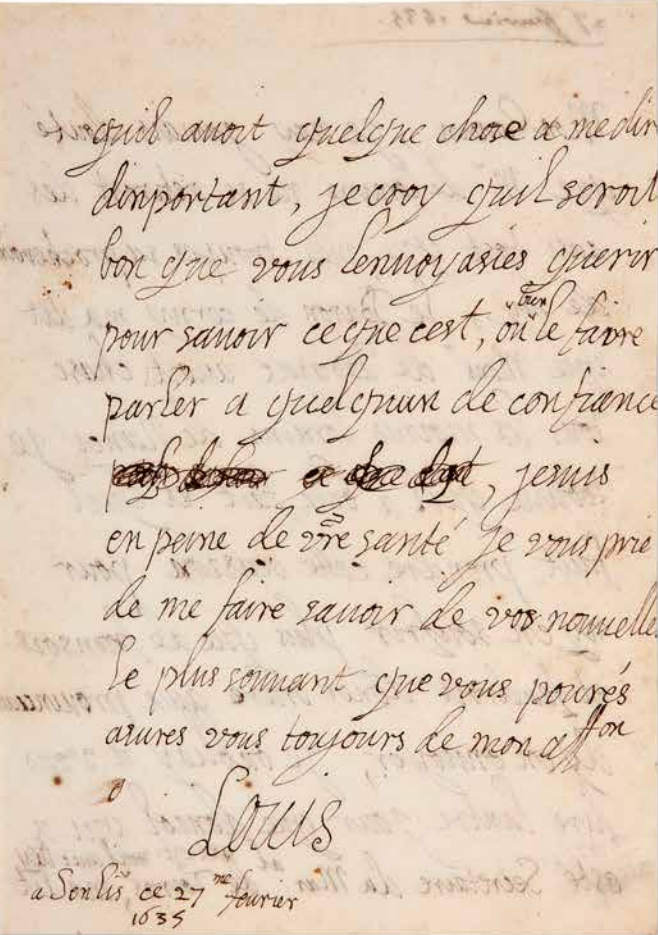 quil avoit quelque chose a me dire
dinportant, je croy quil seroit
bon que vous lennoyasies querir
pour savoir ceque cest, ou bien le faire
parler a quelquun de confiance
, jesuis
en peine de vre santé je vous prie
de me faire savoir de vos nouvelles
le plus souvant que vous pourés
asures vous toujours de mon affon
Louis
a Senlis ce 27me feurier
1635